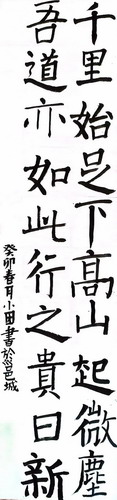 千里始足下高山起微塵
吾道亦如此行之貴日新
癸卯春月小田書於吕城